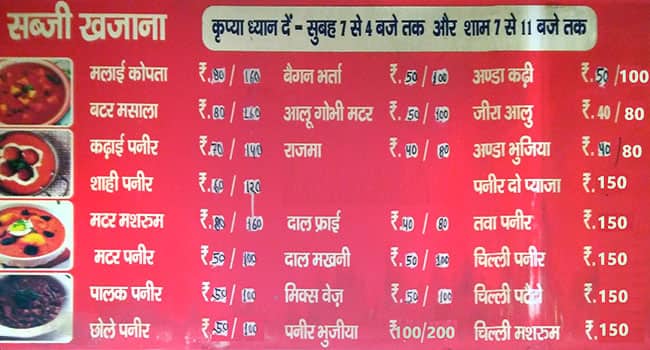 सब्जी खजाना
कृप्या ध्यान दें - सुबह 7 से 4 बजे तक और शाम 7 से 11 बजे तक
मलाई कोपता ₹.80/160 बैगन भर्ता ₹.50/100 अण्डा कढ़ी ₹.50/100
बटर मसाला ₹.80/160 आलू गोभी मटर ₹.50/100 जीरा आलु ₹.40/80
कढ़ाई पनीर ₹.70/140 राजमा ₹.40/80 अण्डा भुजिया ₹.40/80
शाही पनीर ₹.60/120 पनीर दो प्याजा ₹.150
मटर मशरुम ₹.80/160 दाल फ्राई ₹.40/80 तवा पनीर ₹.150
मटर पनीर ₹.50/100 दाल मखनी ₹.50/100 चिल्ली पनीर ₹.150
पालक पनीर ₹.50/100 मिक्स वेज़ ₹.50/100 चिल्ली ₹.150
छोले पनीर ₹.50/100 पनीर भुजीया ₹100/200 चिल्ली मशरुम ₹.150